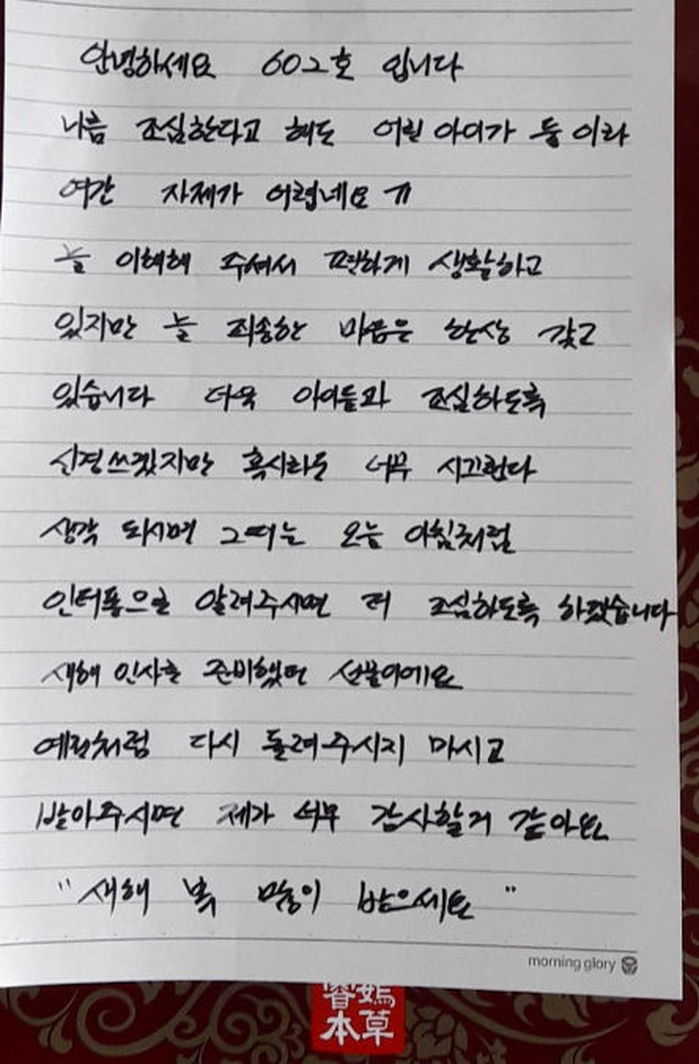 안녕하세요 602호 입니다
나름 조심한다고 해도 어린 아이가 둘 이라
여간 자제가 어렵네요 ㅠ
늘 이해해 주셔서 편하게 생활하고
있지만 늘 죄송한 마음은 항상 갖고
있습니다 더욱 아이들과 조심하도록
신경쓰겠지만 혹시라도 너무 시끄럽다
생각 되시면 그때는 오늘 아침처럼
인터폰으로 알려주시면 더 조심하도록 하겠습니다
새해 인사를 준비했던 선물이에요
예전처럼 다시 돌려주시지 마시고
받아주시면 제가 너무 감사할거 같아요
" 새해 복 많이 받으세요 "
morning glory
本草